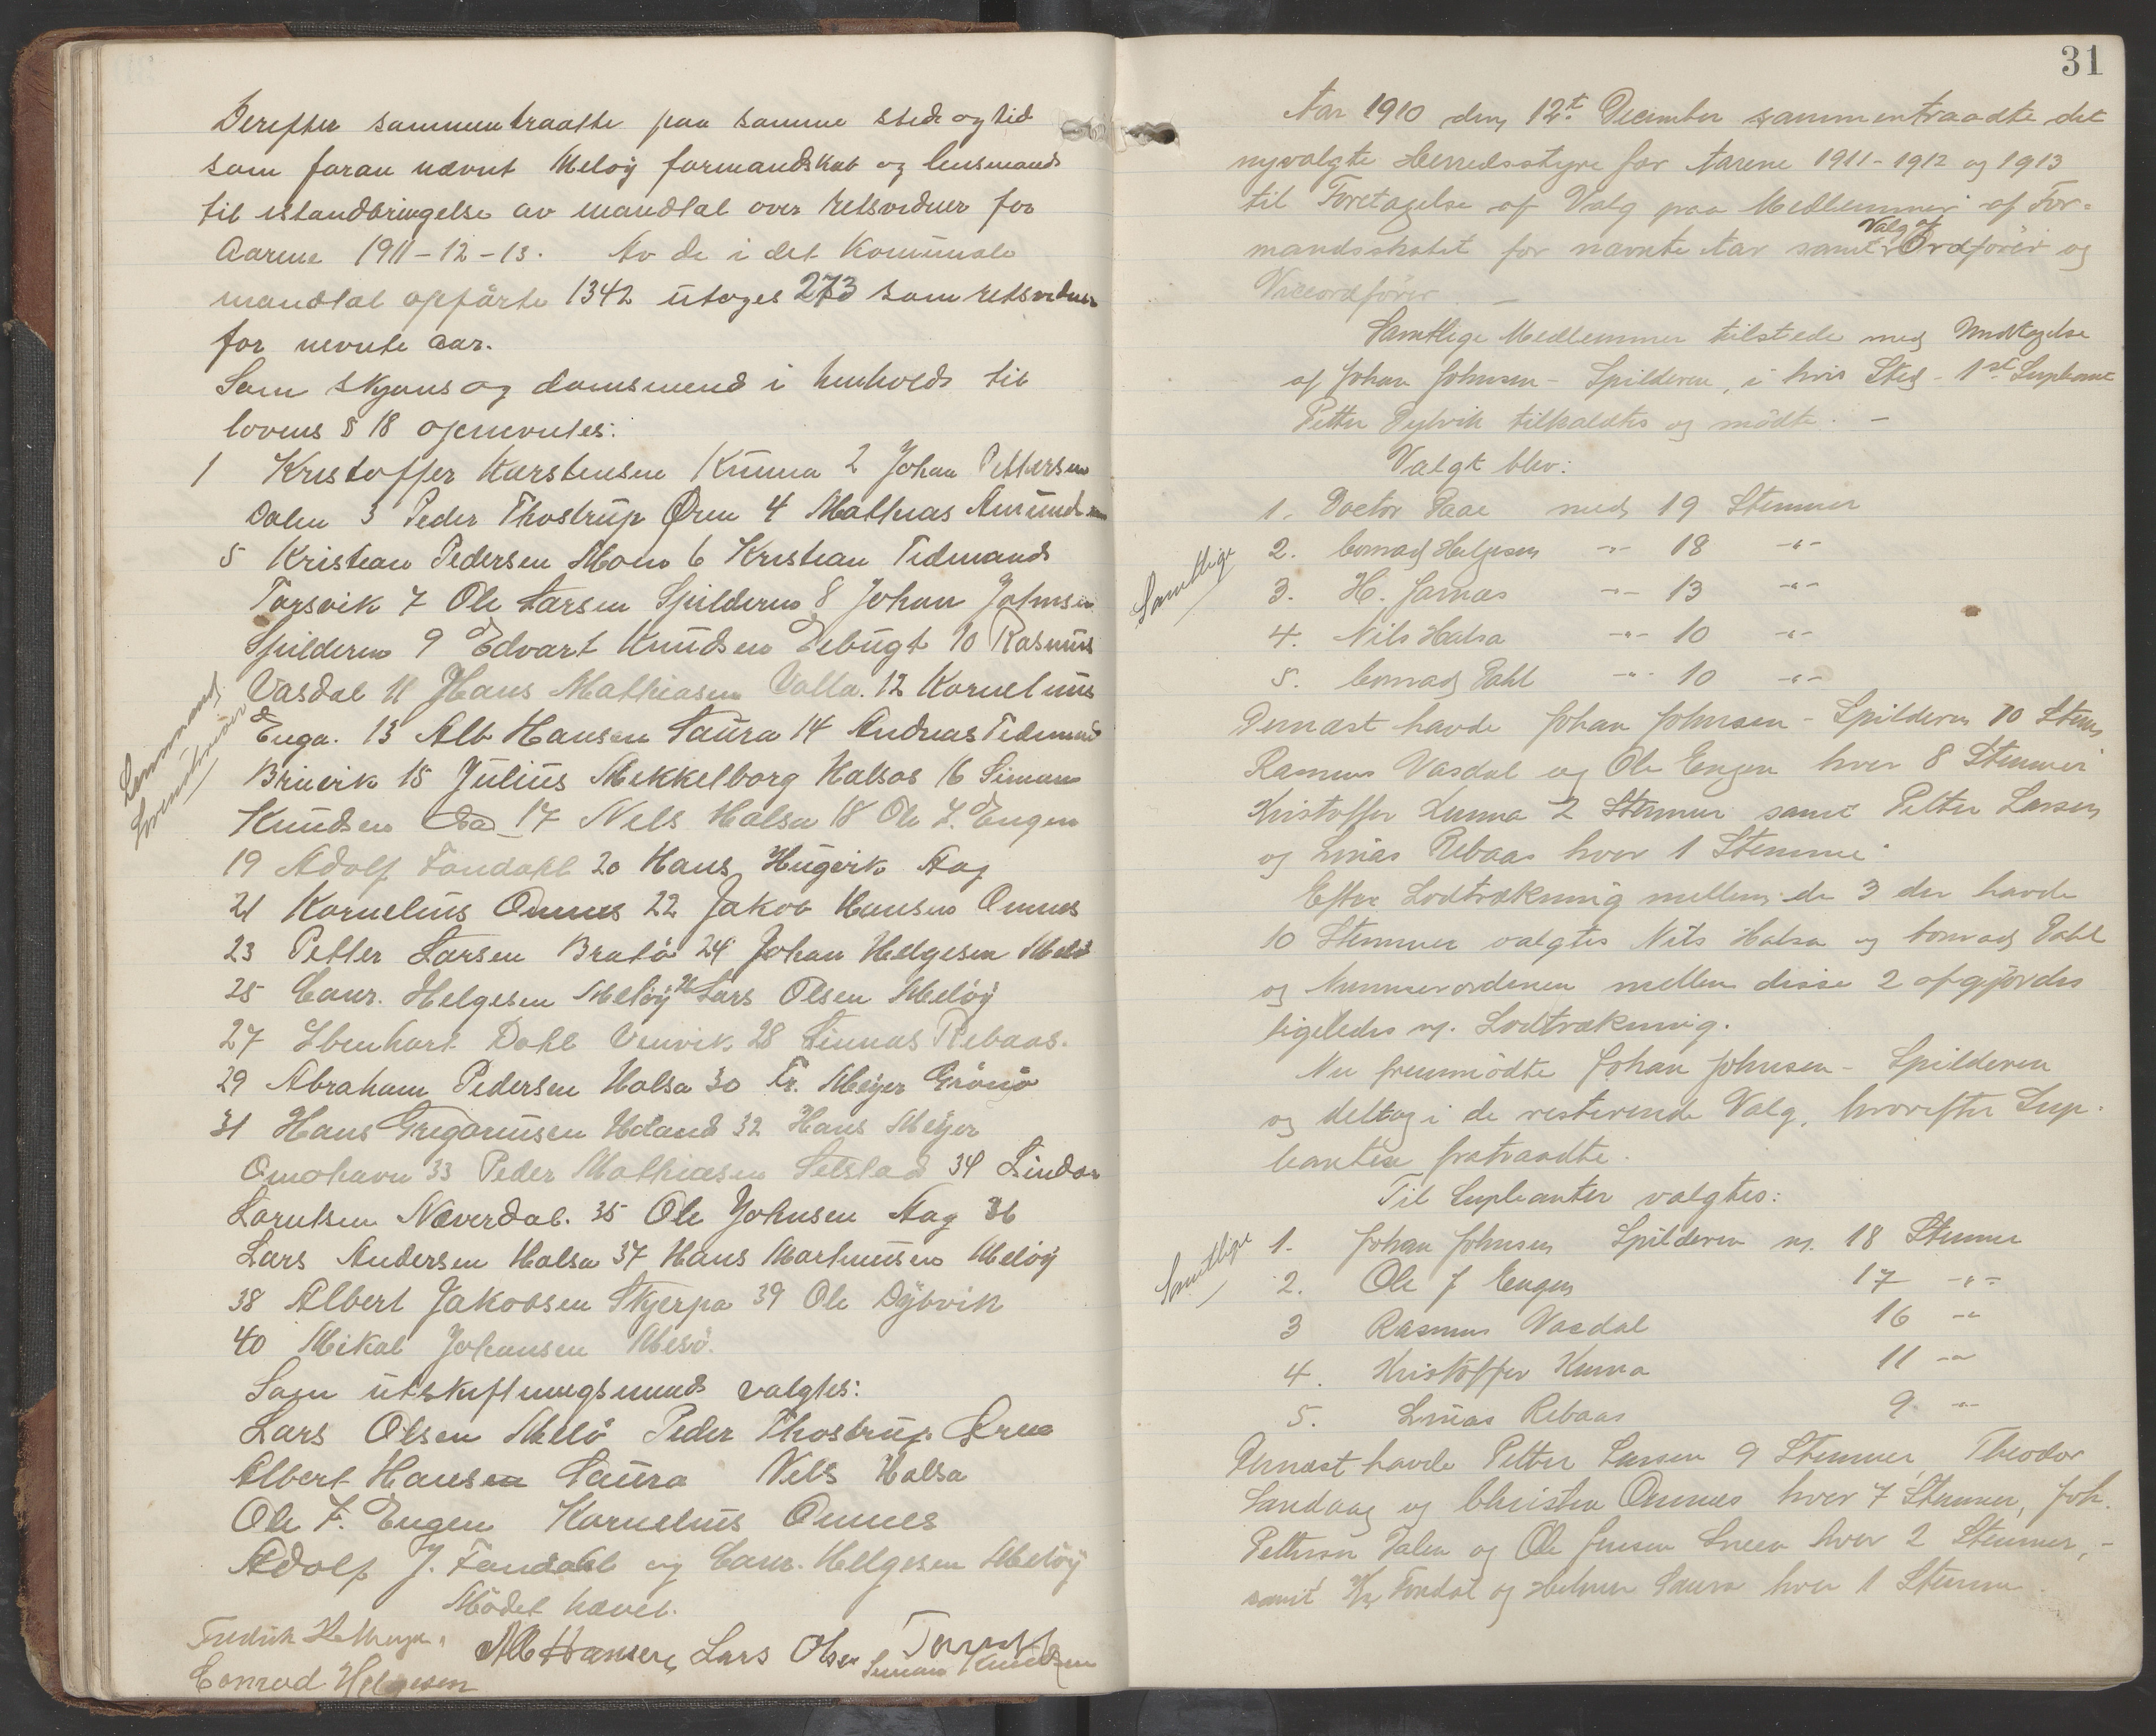 Derefter sammentraatte paa samme sted og tid
som foran nævnt Meløy formandskab og lensmand
til istandbringelse av mandtal over retsvidner for
Aarene 1911-12-13. Av de i det Komunale
mandtal opførte 1342 utoges 273 som retsvidner
for nevnte aar.
Som skjøns og domsmend i henhold til
lovens § 18 opnevntes:
1 Kristoffer Karstensen Kunna 2 Johan Pettersen
Dalen 3 Peder Thostrup Øren 4 Mathias Amundsen
5 Kristian Pedersen Moen 6 Kristian Tidemand
Torsvik 7 Ole Larsen Spilderen 8 Johan Johnsen
Spilderen 9 Edvart Knudsen Eebugt 10 Rasmus
Vasdal 11 Hans Mathiasen Valla. 12 Kornelius
Enga. 13 Alb Hansen Saura 14 Andreas Tidemand
Bruvik 15 Julius Mekkelborg Halsos 16 Simon
Knudsen 17 Nels Halsa 18 Ole F. Engen
19 Adolf Fondahl 20 Hans Hugvik Aag
21 Kornelius Ornnes 22 Jakob Hansen Ornnes
23 Petter Larsen Bratø 24 Johan Helgesen Meløi
25 Conr. Helgesen Meløy 26 Lars Olsen Meløy
27 Ebenhart Dahl Venvik 28 Linnas Rebaas.
29 Abraham Pedersen Halsa 30 Fr. Meyer Grønø
31 Hans Gregoriusen 32 Hans Meyer
Omohavn 33 Peder Mathiasen Selstad 34 Lindor
Lorntsen Næverdal. 35 Ole Johnsen Aag 36
Lars Andersen Halsa 37 Hans Marhinusen Meløy
38 Albert Jakobsen Skjerpa 39 Ole Dybvik
40 Mikal Johansen Mesø.
Som utskiftningsmend valgtes:
Lars Olsen Melø Peder Thostrup Øren
Albert Hansen Saura Nels Halsa
Ole F. Engen Kornelius Ornnes
Adolf J. Fondahl og Conr. Helgesen Meløy
Mødet hævet.
Fredrik
Alb Hansen, Lars Olsen
Simon Knudsen
Conrad Helgesen
Lensmand
31
Aar 1910 den 12t December sammentraadte det
nyvalgte Herredsstyre for Aarene 1911-1912 og 1913
til Foretagelse af Valg paa Medlemmer af For-
mandsskabet for nævnte Aar samt Valg af Ordfører og
Viceordfører. —
Samtlige Medlemmer tilstede med Undtagelse
af Johan Johnsen - Spilderen, i hvis Sted - 1ste Supleant
Petter Dybvik tilkaldtes og mødte. —
Valgt blev:
1. Doctor Paae med 19 Stemmer
2. Conrad Helgesen -"- 18 -"-
3. H. Jarnæs -"- 13 -"-
Samtlige
4. Nils Halsa -"- 10 -"-
5. Conrad Dahl -"- 10 -"-
Dernæst havde Johan Johnsen - Spilderen 10 Stem,
Rasmus Vasdal og Ole Engen hver 8 Stemmer
Kristoffer Kunna 2 Stemmer samt Petter Larsen
og Linias Rebaas hver 1 Stemme.
Efter Lodtrækning mellem de 3 der havde
10 Stemmer valgtes Nils Halsa og Conrad Dahl
og Nummerordenen mellem disse 2 afgjordes
ligeledes v. Lodtrækning.
Nu fremmødte Johan Johnsen - Spilderen
og deltog i de resterende Valg, hvorefter Sup-
leanten fratraadte.
Til Supleanter valgtes:
1. Johan Johnsen Spilderen m. 18 Stemmer
Samtlige
2. Ole J Engen 17 -"-
3 Rasmus Vasdal 16 -"-
4. Kristoffer Kunna 11 -"-
5. Linias Rebaas 9 -"-
Dernæst havde Petter Larsen 9 Stemmer, Theodor
Sandaag og Christen Ornnes hver 7 Stemmer, Joh.
Petterson Dalen og Ole Jensen hver 2 Stemmer, -
samt Fondal og Helmer Saura hver 1 Stemme.